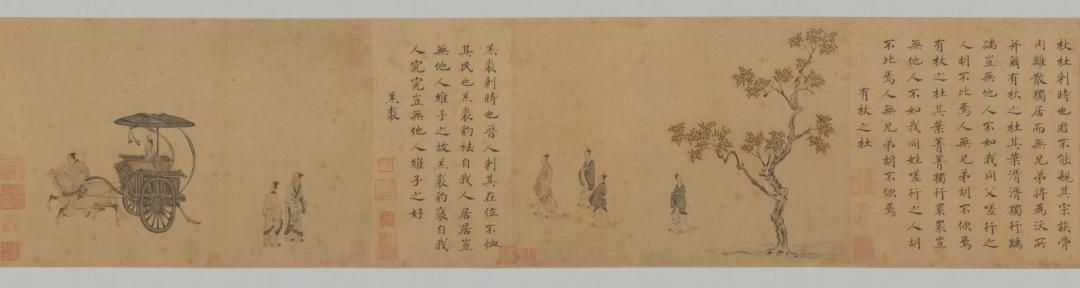 杕杜刺時也君不能親其宗族骨
肉離散獨居而無兄弟將為沃所
并爾有杕之杜其葉湑湑獨行踽
踽豈無他人不如我同父嗟行之
人胡不比焉人無兄弟胡不佽焉
有杕之杜其葉菁菁獨行睘睘豈
無他人不如我同姓嗟行之人胡
不比焉人無兄弟胡不佽焉
有杕之杜
羔裘刺時也晉人刺其在位不恤
其民也羔裘豹袪自我人居居豈
無他人維子之故羔裘豹褎自我
人究究豈無他人維子之好
羔裘